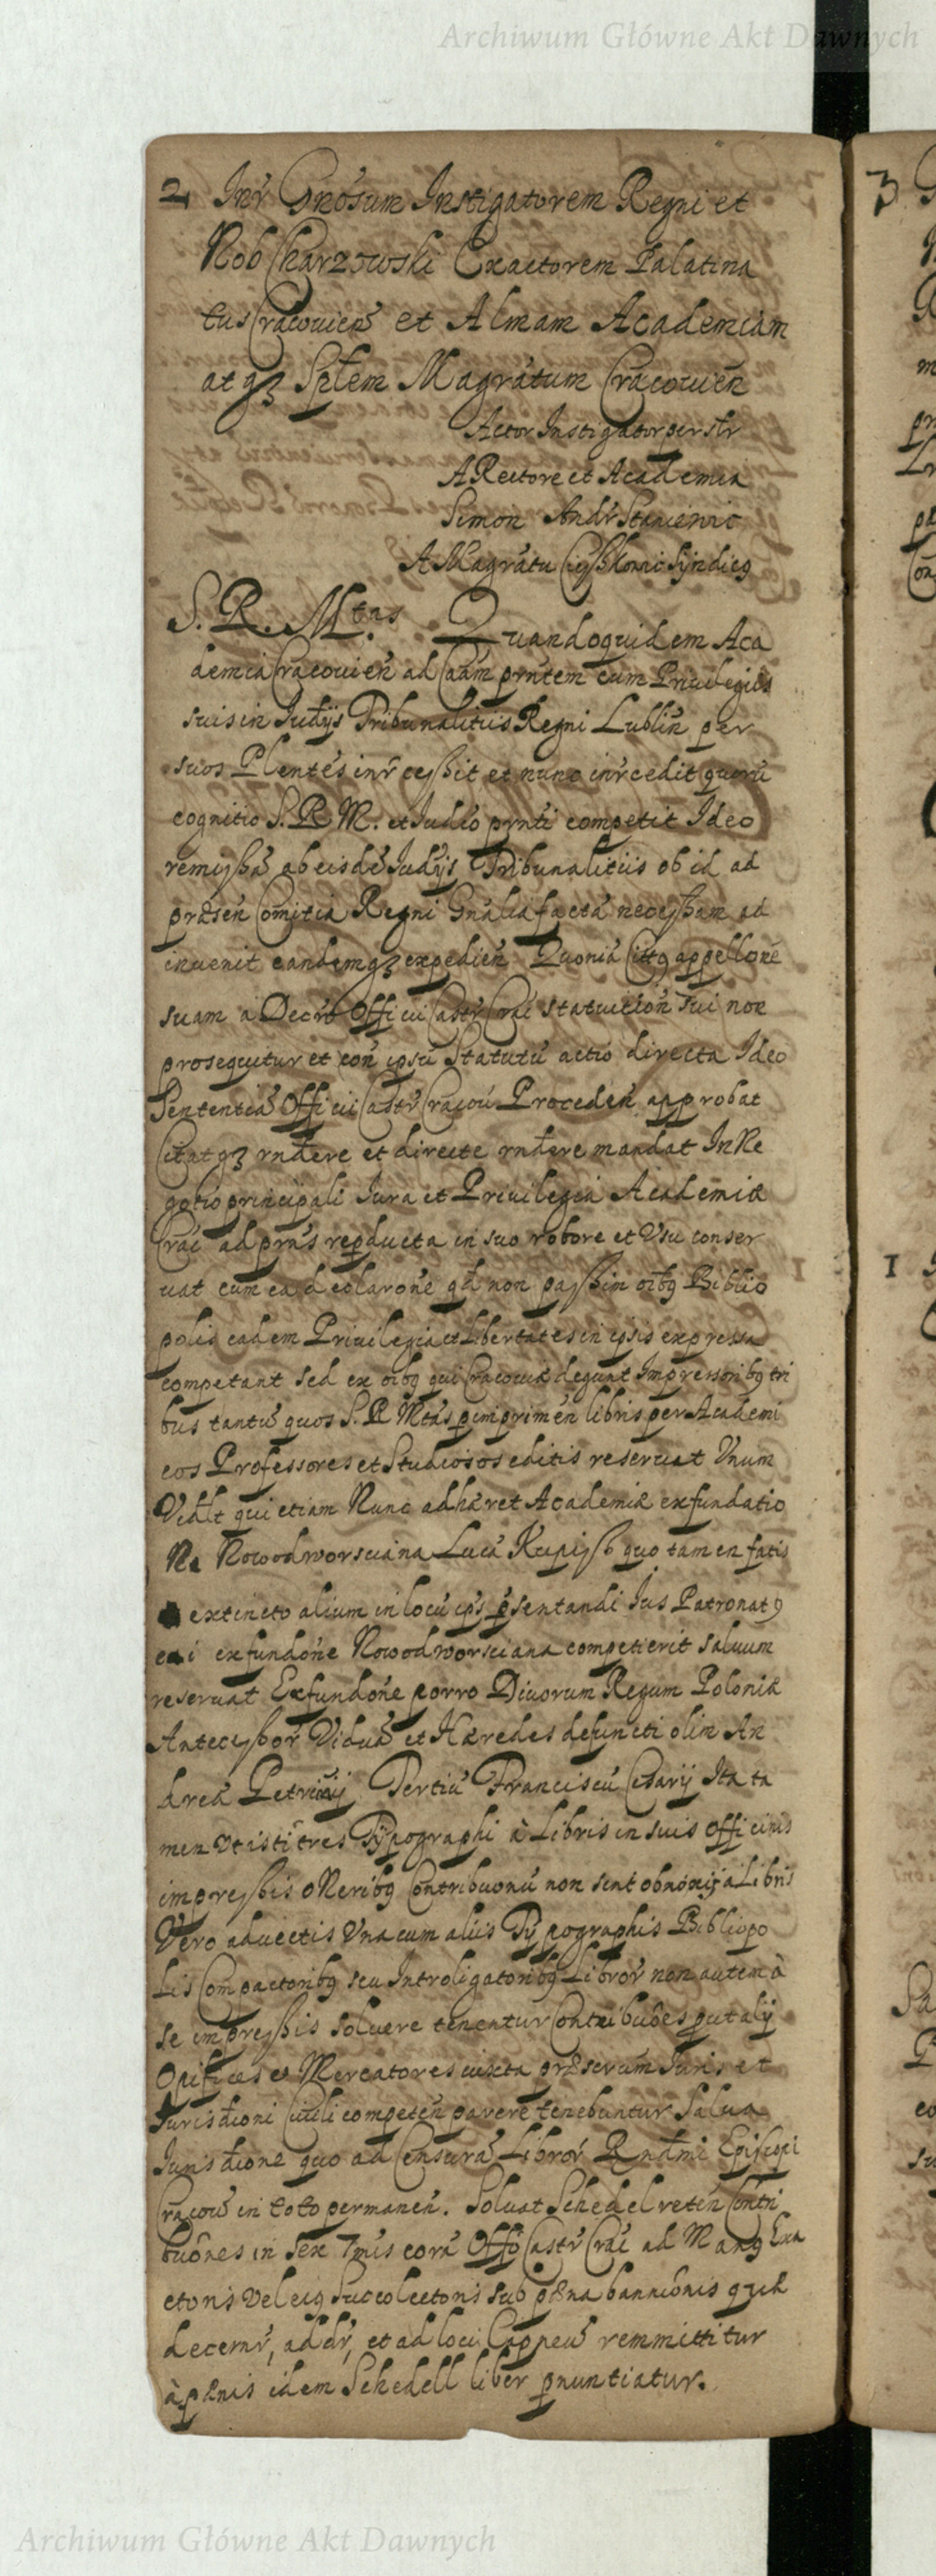 Archiwum Główne Akt Dawnych
2 Inr̃ Gnosum Instigatorem Regni et
Nob Charzowski Exactorem Palatina
tus Cracouien̄ et Almam Academiam
atqȝ Splem Magrãtum Cracouien̄
Actor Instigator per str̃
A Rectore et Academia
Simon Andr̃
A Magrãtu Syndicq
S. R. Mtas Quandoquidem Aca
demia Cracouien̄ ad Cãam prñtem cum Priuilegiis
suis in Judijs Tribunalitiis Regni Lublin̄ per
suos Plentes inr̃cessit et nunc inr̃cedit quorũ
cognitio S. R. M. et Judio prñti competit Ideo
remissã ab eisdẽ Judijs Tribunalitiis ob id ad
præsen̄ Comitia Regni Gnãlia factã necessam ad
inuenit eandemqȝ expedien̄ Quoniã Cittq appellõne
suam a Decrõ Officii Castr̃ Crac statuition̄ sui non
prosequitur et con̄ ipsũ Statutũ actio directa Ideo
Sententiã Officii Castr̃ Cracou Proceden̄ approbat
Citatqȝ rñdere et directe rñdere mandat In Ne
gotio principali Iura et Priuilegia Academiæ
Crac ad prñs reproducta in suo robore et Vsu conser
uat cum ea declarõne qd̃ non passim oibq Biblio
polis eadem Priuilegia et libertates in ipsis expressa
competant sed ex oibq qui Cracouiæ degunt Impressoribq tri
bus tantũ quos S. R. Mtas p imprimen̄ libris per Academi
cos Professores et Studiosos editis reseruat Vnum
Vidlt qui etiam Nunc adhæret Academiæ ex fundatio
Ne Nowodworsciana Lucã Kupisz quo tamen fatis
extincto alium in locũ ips̃ psentandi Jus Patronatq
ex fundõne Nowodworsciana competierit saluum
reseruat Ex fundõne porro Diuorum Regum Poloniæ
Antecessor̃ Viduã et Hæredes defuncti olim An
dreæ Petricij Tertiũ Franciscũ Cesarij Ita ta
men vt isti tres Typographi à Libris in suis officinis
impressis oneribq Contribuonũ non sint obnoxij a Libris
Vero aduectis Vna cum aliis Typographis Bibliopo
Lis Compactoribq seu Introligatoribq Libror̃ non autem à
se impressis soluere tenentur Contribuões put alij
Opifices et Mercatores iuxta præscrum Iuris et
Iurisdioni Ciuili competen̄ parere tenebuntur Salua
Iurisdione quo ad Censurã Libror̃ Rndmi Episcopi
Cracou in toto permanen̄. Soluat Schedel reten̄ Contri
buões in sex 7mis corã Offõ Castr̃ Crac ad Manq Exa
ctoris vel eiq Succolectoris sub pæna bannionis
decernr̃, addr̃, et ad loci remmittitur
à pænis idem Schedell liber pnuntiatur.
3
1
Archiwum Główne Akt Dawnych